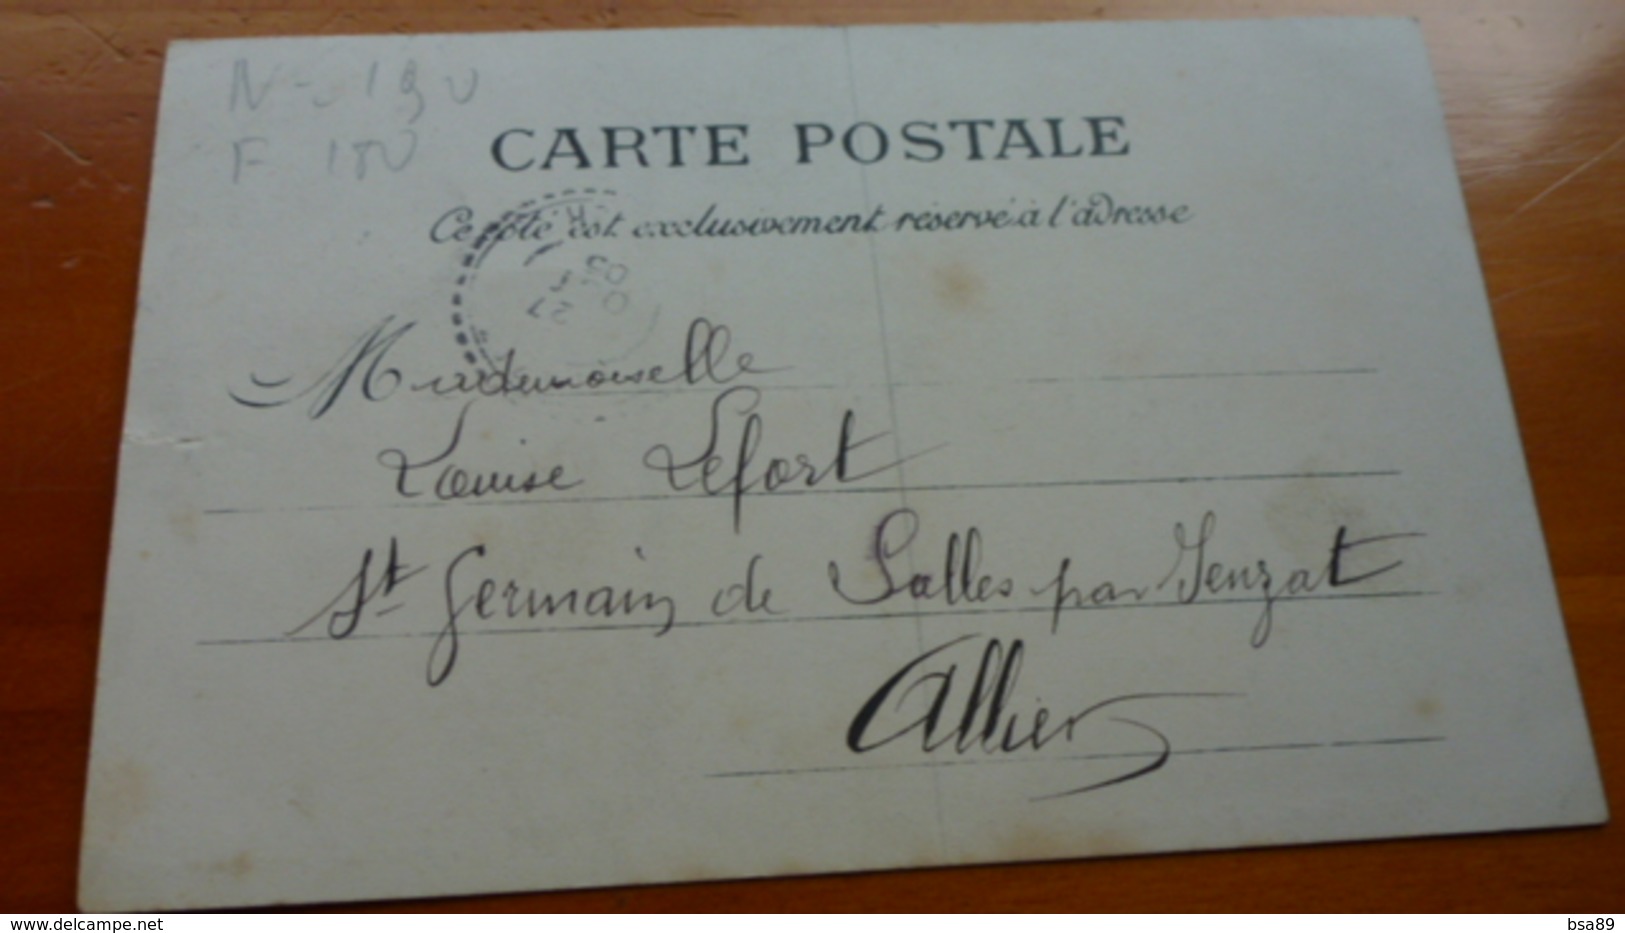 CARTE POSTALE
Ce côté est exclusivement réservé à l'adresse
27
05
Mademoiselle
Louise Lefort
St Germain de Salles par Jenzat
Allier
delcampe.net
bsa89